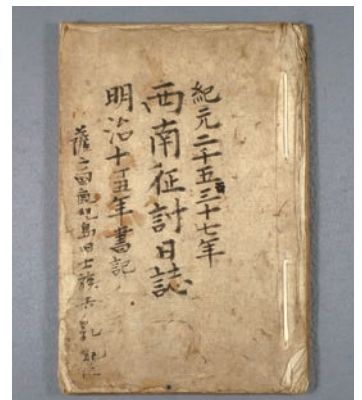 紀元二千五百三十七年
西南征討日誌
明治十丑年書記
鹿児島旧士族